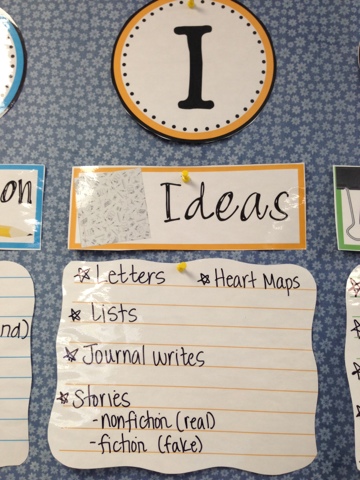 I
on
Ideas
Letters Heart Maps
Lists
nd)
Journal writes
Stories
-nonfiction (real)
-fiction (fake)